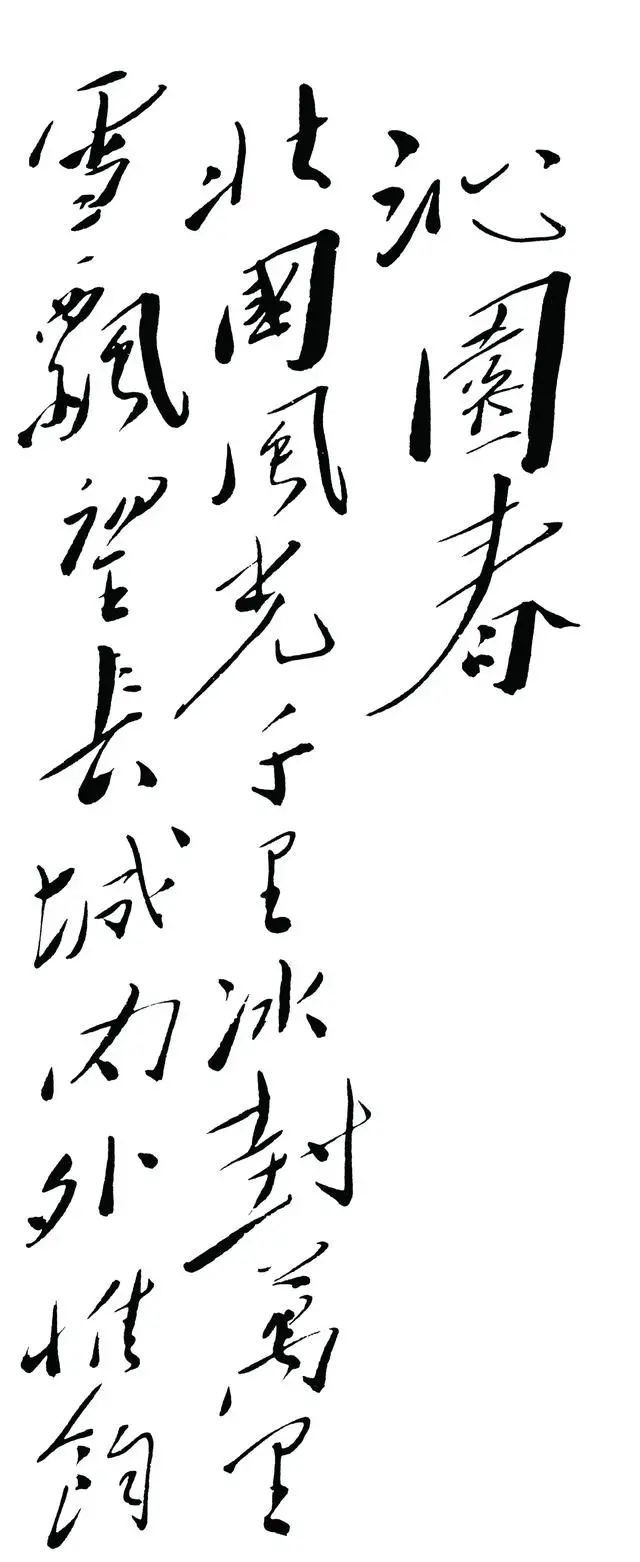 沁園春
北國風光千里冰封萬里
雪飄望長城內外惟餘